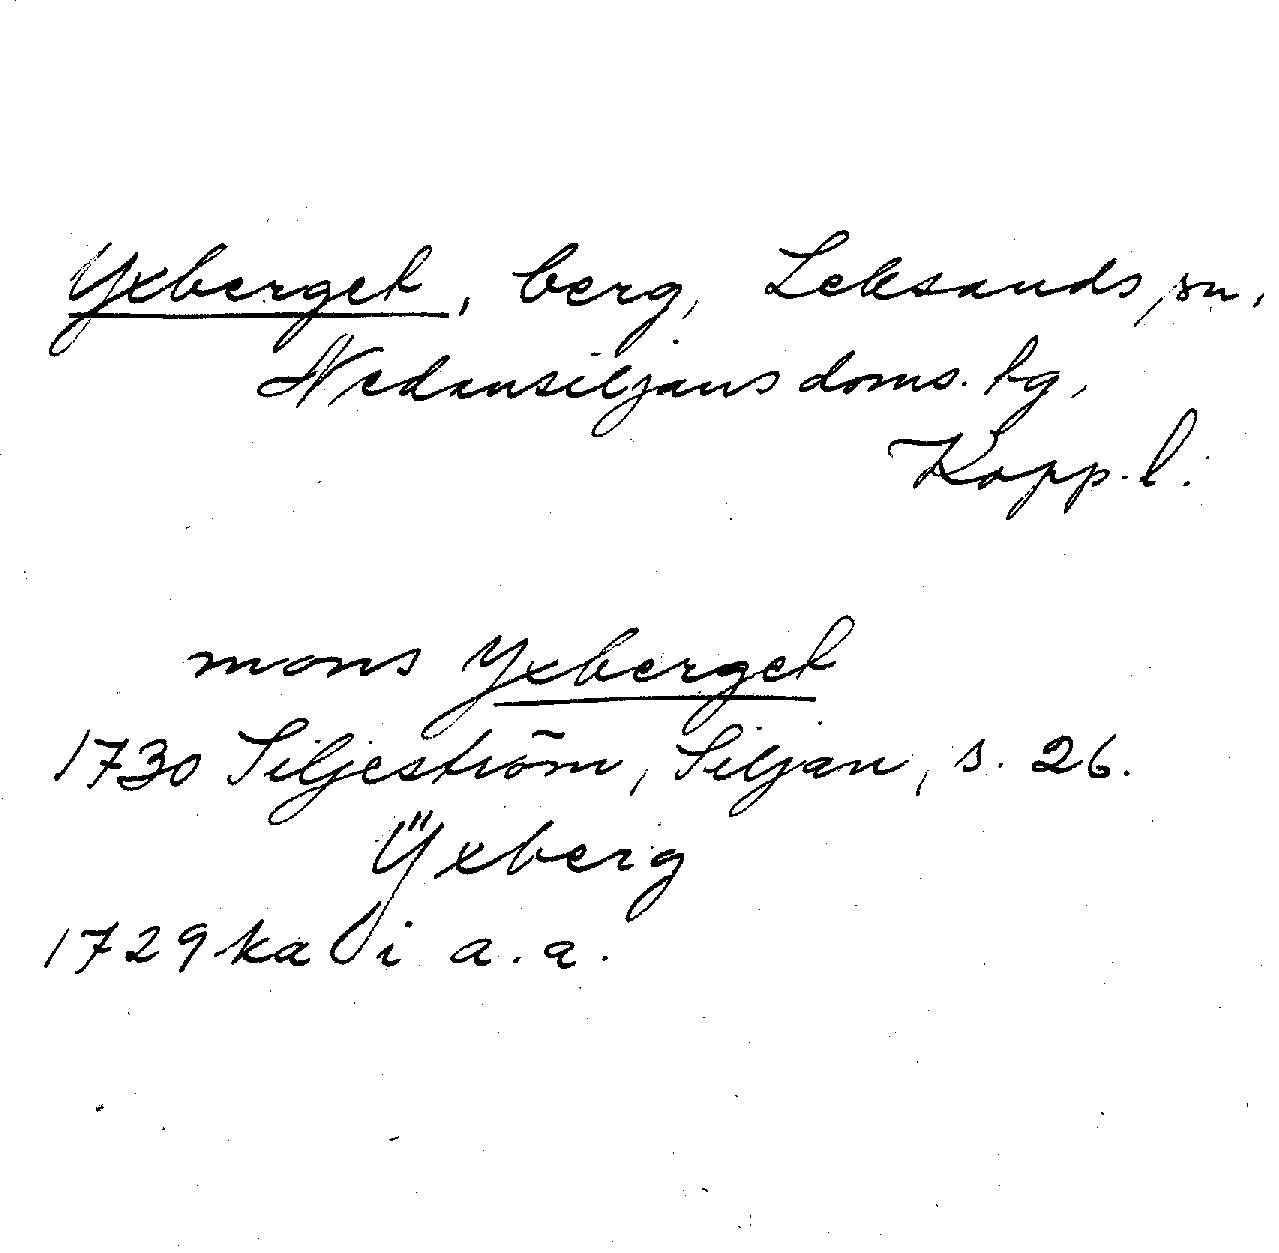 Yxberget, berg, Leksands sn,
Nedansiljans doms. hg,
Kopp. l.
mons Yxberget
1730 Siljeström, Siljan, s. 26.
Ÿxberg
1729 ka i a.a.